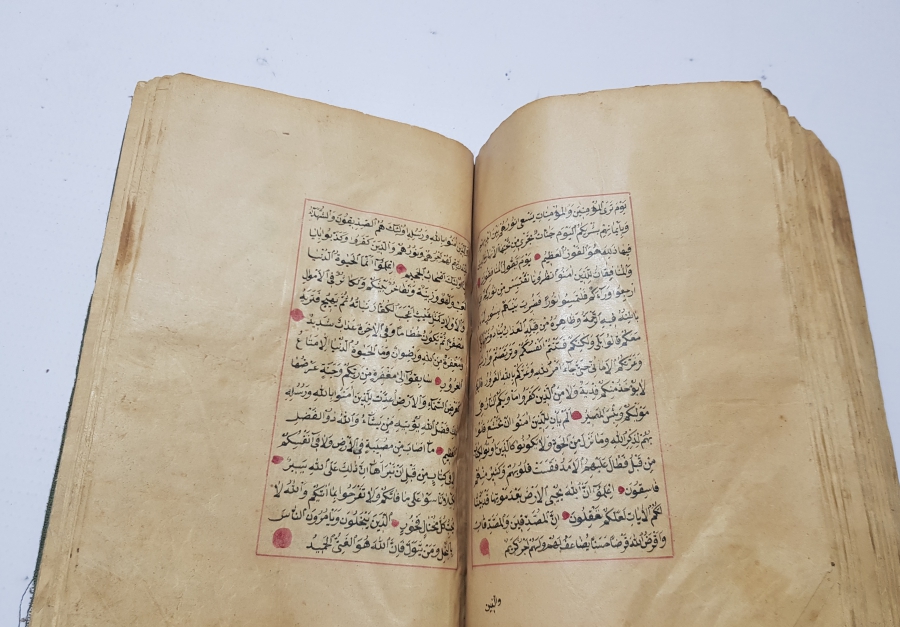 يَوْمَ تَرَى الْمُؤْمِنِينَ وَالْمُؤْمِنَاتِ يَسْعَى نُورُهُمْ بَيْنَ
وَبِأَيْمَانِهِمْ بُشْرَيكُمُ الْيَوْمَ جَنَّاتٌ تَجْرِي مِنْ تَحْتِهَا
فِيهَا ذَلِكَ هُوَ الْفَوْزُ الْعَظِيمُ يَوْمَ يَقُولُ الْمُنَافِقُونَ
لِلَّذِينَ اٰمَنُوا انْظُرُونَا نَقْتَبِسْ مِنْ نُورِكُمْ
ارْجِعُوا وَرَاءَكُمْ فَالْتَمِسُوا نُورًا فَضُرِبَ بَيْنَهُمْ بِسُورٍ
بَاطِنُهُ فِيهِ الرَّحْمَةُ وَظَاهِرُهُ مِنْ قِبَلِهِ الْعَذَابُ
مَعَكُمْ قَالُوا بَلَى وَلَكِنَّكُمْ فَتَنْتُمْ أَنْفُسَكُمْ وَتَرَبَّصْتُمْ
وَغَرَّتْكُمُ الْأَمَانِيُّ حَتَّى جَاءَ أَمْرُ اللهِ وَغَرَّكُمْ بِاللهِ الْغَرُورُ
لَا يُؤْخَذُ مِنْكُمْ فِدْيَةٌ وَلَا مِنَ الَّذِينَ كَفَرُوا مَأْوَيكُمُ النَّارُ هِيَ
مَوْلَيكُمْ وَبِئْسَ الْمَصِيرُ أَلَمْ يَأْنِ لِلَّذِينَ اٰمَنُوا أَنْ تَخْشَعَ قُلُو
بُهُمْ لِذِكْرِ اللهِ وَمَا نَزَلَ مِنَ الْحَقِّ وَلَا يَكُونُوا كَالَّذِينَ أُوتُوا
مِنْ قَبْلُ فَطَالَ عَلَيْهِمُ الْأَمَدُ فَقَسَتْ قُلُوبُهُمْ وَكَثِيرٌ مِنْهُمْ
فَاسِقُونَ اعْلَمُوا أَنَّ اللهَ يُحْيِي الْأَرْضَ بَعْدَ مَوْتِهَا قَدْ بَيَّنَّا
لَكُمُ الْاٰيَاتِ لَعَلَّكُمْ تَعْقِلُونَ إِنَّ الْمُصَّدِّقِينَ وَالْمُصَّدِّقَاتِ
وَأَقْرَضُوا اللهَ قَرْضًا حَسَنًا يُضَاعَفُ لَهُمْ وَلَهُمْ أَجْرٌ كَرِيمٌ
والذين
بِاللهِ وَرُسُلِهِ أُولَئِكَ هُمُ الصِّدِّيقُونَ وَالشُّهَدَاءُ
لَهُمْ أَجْرُهُمْ وَنُورُهُمْ وَالَّذِينَ كَفَرُوا وَكَذَّبُوا بِاٰيَاتِنَا
أُولَئِكَ أَصْحَابُ الْجَحِيمِ اعْلَمُوا أَنَّمَا الْحَيَوةُ الدُّنْيَا
وَلَهْوٌ وَزِينَةٌ وَتَفَاخُرٌ بَيْنَكُمْ وَتَكَاثُرٌ فِي الْأَمْوَالِ
وَالْأَوْلَادِ كَمَثَلِ غَيْثٍ أَعْجَبَ الْكُفَّارَ نَبَاتُهُ ثُمَّ يَهِيجُ فَتَرَيهُ
مُصْفَرًّا ثُمَّ يَكُونُ حُطَامًا وَفِي الْاٰخِرَةِ عَذَابٌ شَدِيدٌ
وَمَغْفِرَةٌ مِنَ اللهِ وَرِضْوَانٌ وَمَا الْحَيَوةُ الدُّنْيَا إِلَّا مَتَاعُ
الْغُرُورِ سَابِقُوا إِلَى مَغْفِرَةٍ مِنْ رَبِّكُمْ وَجَنَّةٍ عَرْضُهَا
كَعَرْضِ السَّمَاءِ وَالْأَرْضِ أُعِدَّتْ لِلَّذِينَ اٰمَنُوا بِاللهِ وَرُسُلِهِ
فَضْلُ اللهِ يُؤْتِيهِ مَنْ يَشَاءُ وَاللهُ ذُو الْفَضْلِ
الْعَظِيمِ مَا أَصَابَ مِنْ مُصِيبَةٍ فِي الْأَرْضِ وَلَا فِي أَنْفُسِكُمْ
إِلَّا فِي كِتَابٍ مِنْ قَبْلِ أَنْ نَبْرَأَهَا إِنَّ ذَلِكَ عَلَى اللهِ يَسِيرٌ
تَأْسَوْا عَلَى مَا فَاتَكُمْ وَلَا تَفْرَحُوا بِمَا اٰتَيكُمْ وَاللهُ لَا
كُلَّ مُخْتَالٍ فَخُورٍ الَّذِينَ يَبْخَلُونَ وَيَأْمُرُونَ النَّاسَ
بِالْبُخْلِ وَمَنْ يَتَوَلَّ فَإِنَّ اللهَ هُوَ الْغَنِيُّ الْحَمِيدُ